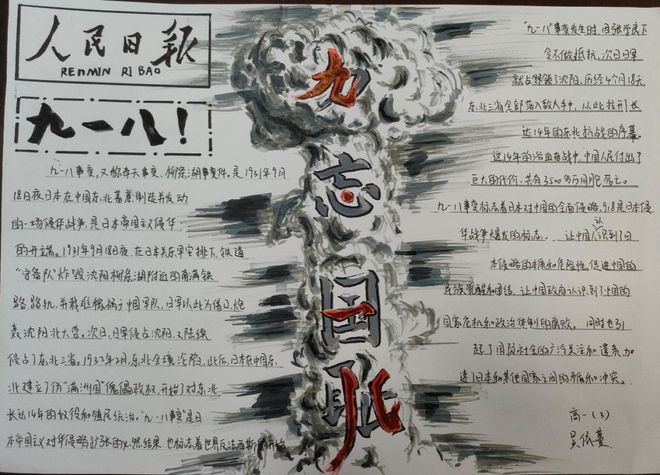 人民日报
RENMIN RI BAO
九一八！
勿忘国耻
九一八事变，又称奉天事变、柳条湖事变件。是1931年9月
18日夜日本在中国东北蓄意制造并发动
的一场侵华战争，是日本帝国主义侵华
的开端。1931年9月18日夜，在日本关东军安排下，铁道
“守备队”炸毁沈阳柳条湖附近的南满铁
路路轨，并栽赃嫁祸于中国军队，日军以此为借口，炮
轰沈阳北大营。次日，日军侵占沈阳，又陆续
侵占了东北三省。1932年2月，东北全境沦陷，此后，日本在中国东
北建立了伪“满洲国”傀儡政权，开始了对东北
长达14年的奴役和殖民统治。“九一八事变”是日
本帝国主义对华侵略扩张的必然结果，也标志着世界反法西斯的开始
“九一八”事变发生时，因张学良下
令不做抵抗，次日日军
就占领了沈阳，历经4个月18天，
东北三省全部落入敌人手中，从此拉开长
达14年的东北抗战的序幕
这14年的浴血奋战中，中国人民付出了
巨大的代价，共有3500多万同胞死亡。
九一八事变标志着日本对中国的全面侵略，918是日本侵
华战争爆发的标志。让中国人认识到了日
本侵略的本质和危险性，促进中国的
民族觉醒和团结，让中国政府认识到了中国的
国家危机和政治体制的腐败。同时也引
起了国际社会的广泛关注和谴责，加
速了日本和其他国家之间的矛盾和冲突。
高一(3)